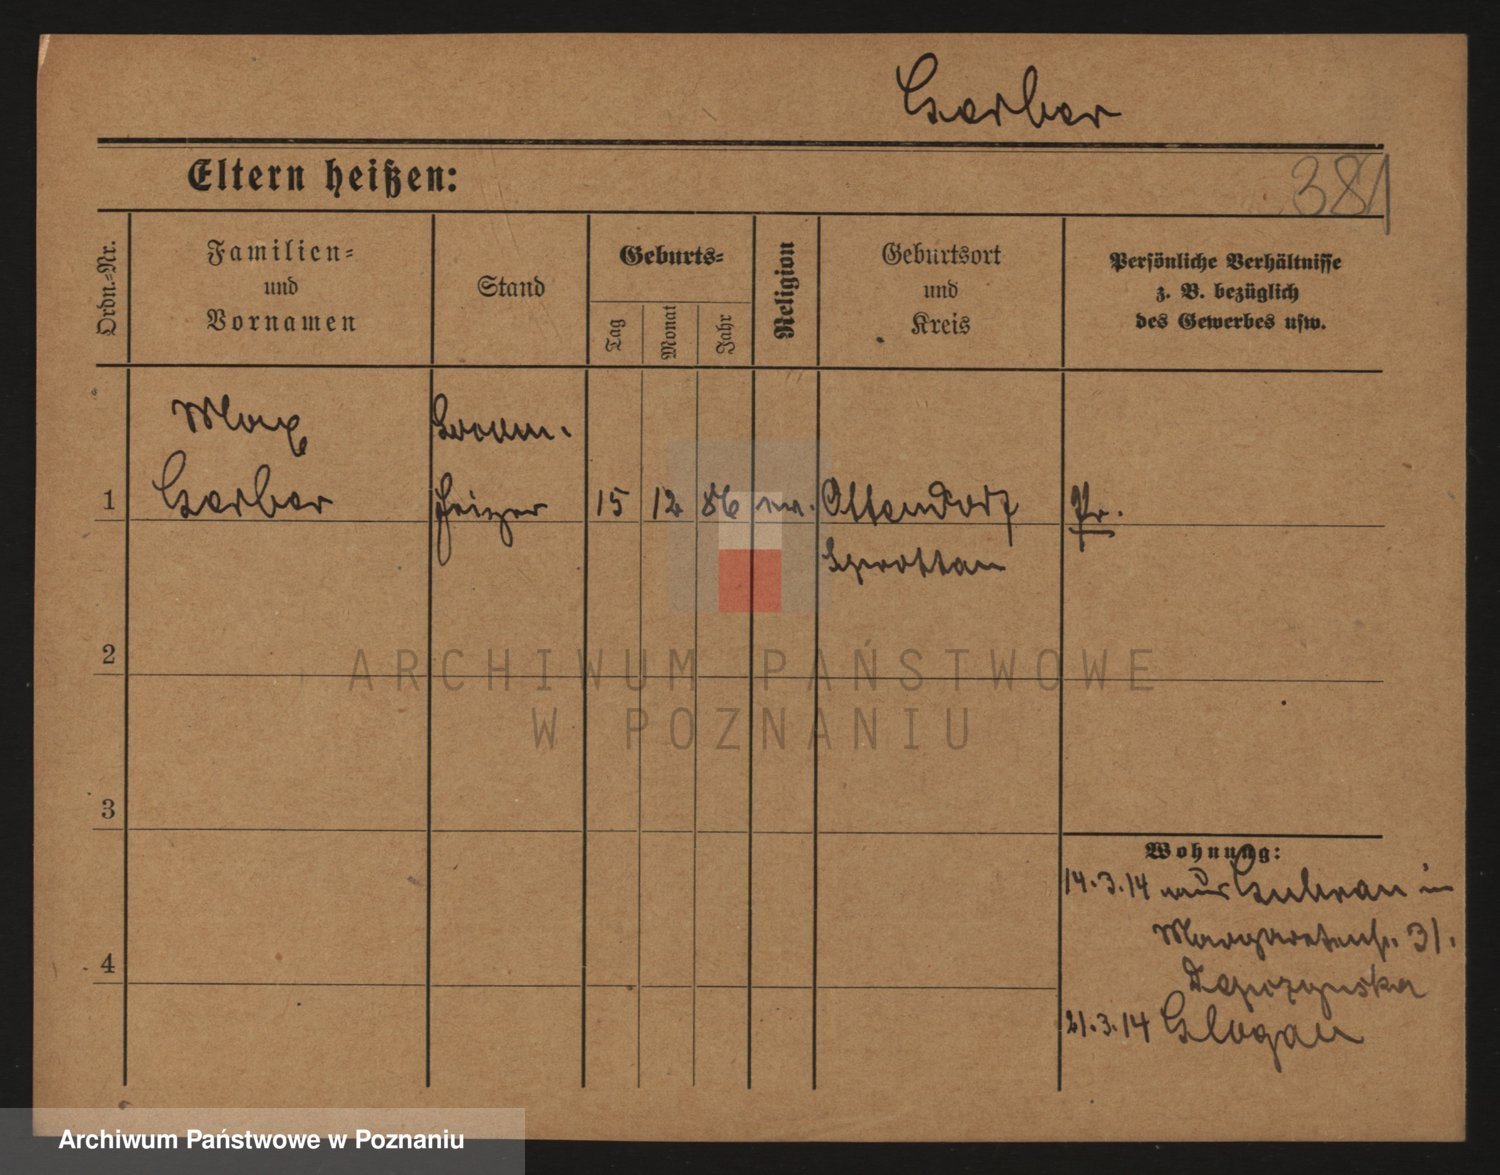 Gerber
Eltern heißen:
381
Ordn.-Nr.
Familien-
und
Vornamen
Stand
Geburts-
Tag
Monat
Jahr
Religion
Geburtsort
und
Kreis
Persönliche Verhältnisse
z. B. bezüglich
des Gewerbes usw.
Max
Gerber
heizer
1
15
12
86
ev.
Ottendorf
Sprottau
Pr.
2
3
4
Wohnung:
14.3.14 aus Guhrau in
Margaretenstr. 31.
21.3.14 Glogau
ARCHIWUM PAŃSTWOWE
W POZNANIU
Archiwum Państwowe w Poznaniu